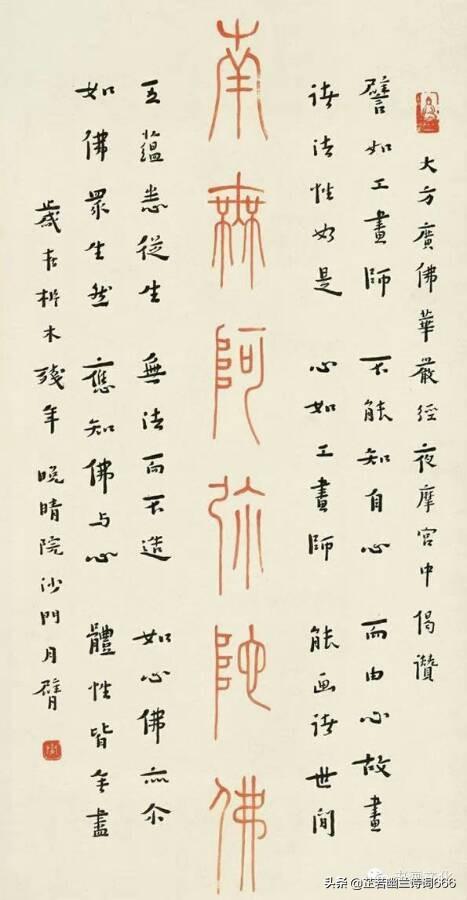 大方廣佛華嚴經夜摩宮中偈讚
譬如工畫師 不能知自心 而由心故畫
諸法性如是 心如工畫師 能画諸世間
南無阿弥陀佛
五蘊悉從生 無法而不造 如心佛亦尔
如佛眾生然 應知佛与心 體性皆無盡
歲在析木殘年 晚晴院沙門月臂
头条 @芷若幽兰诗词666